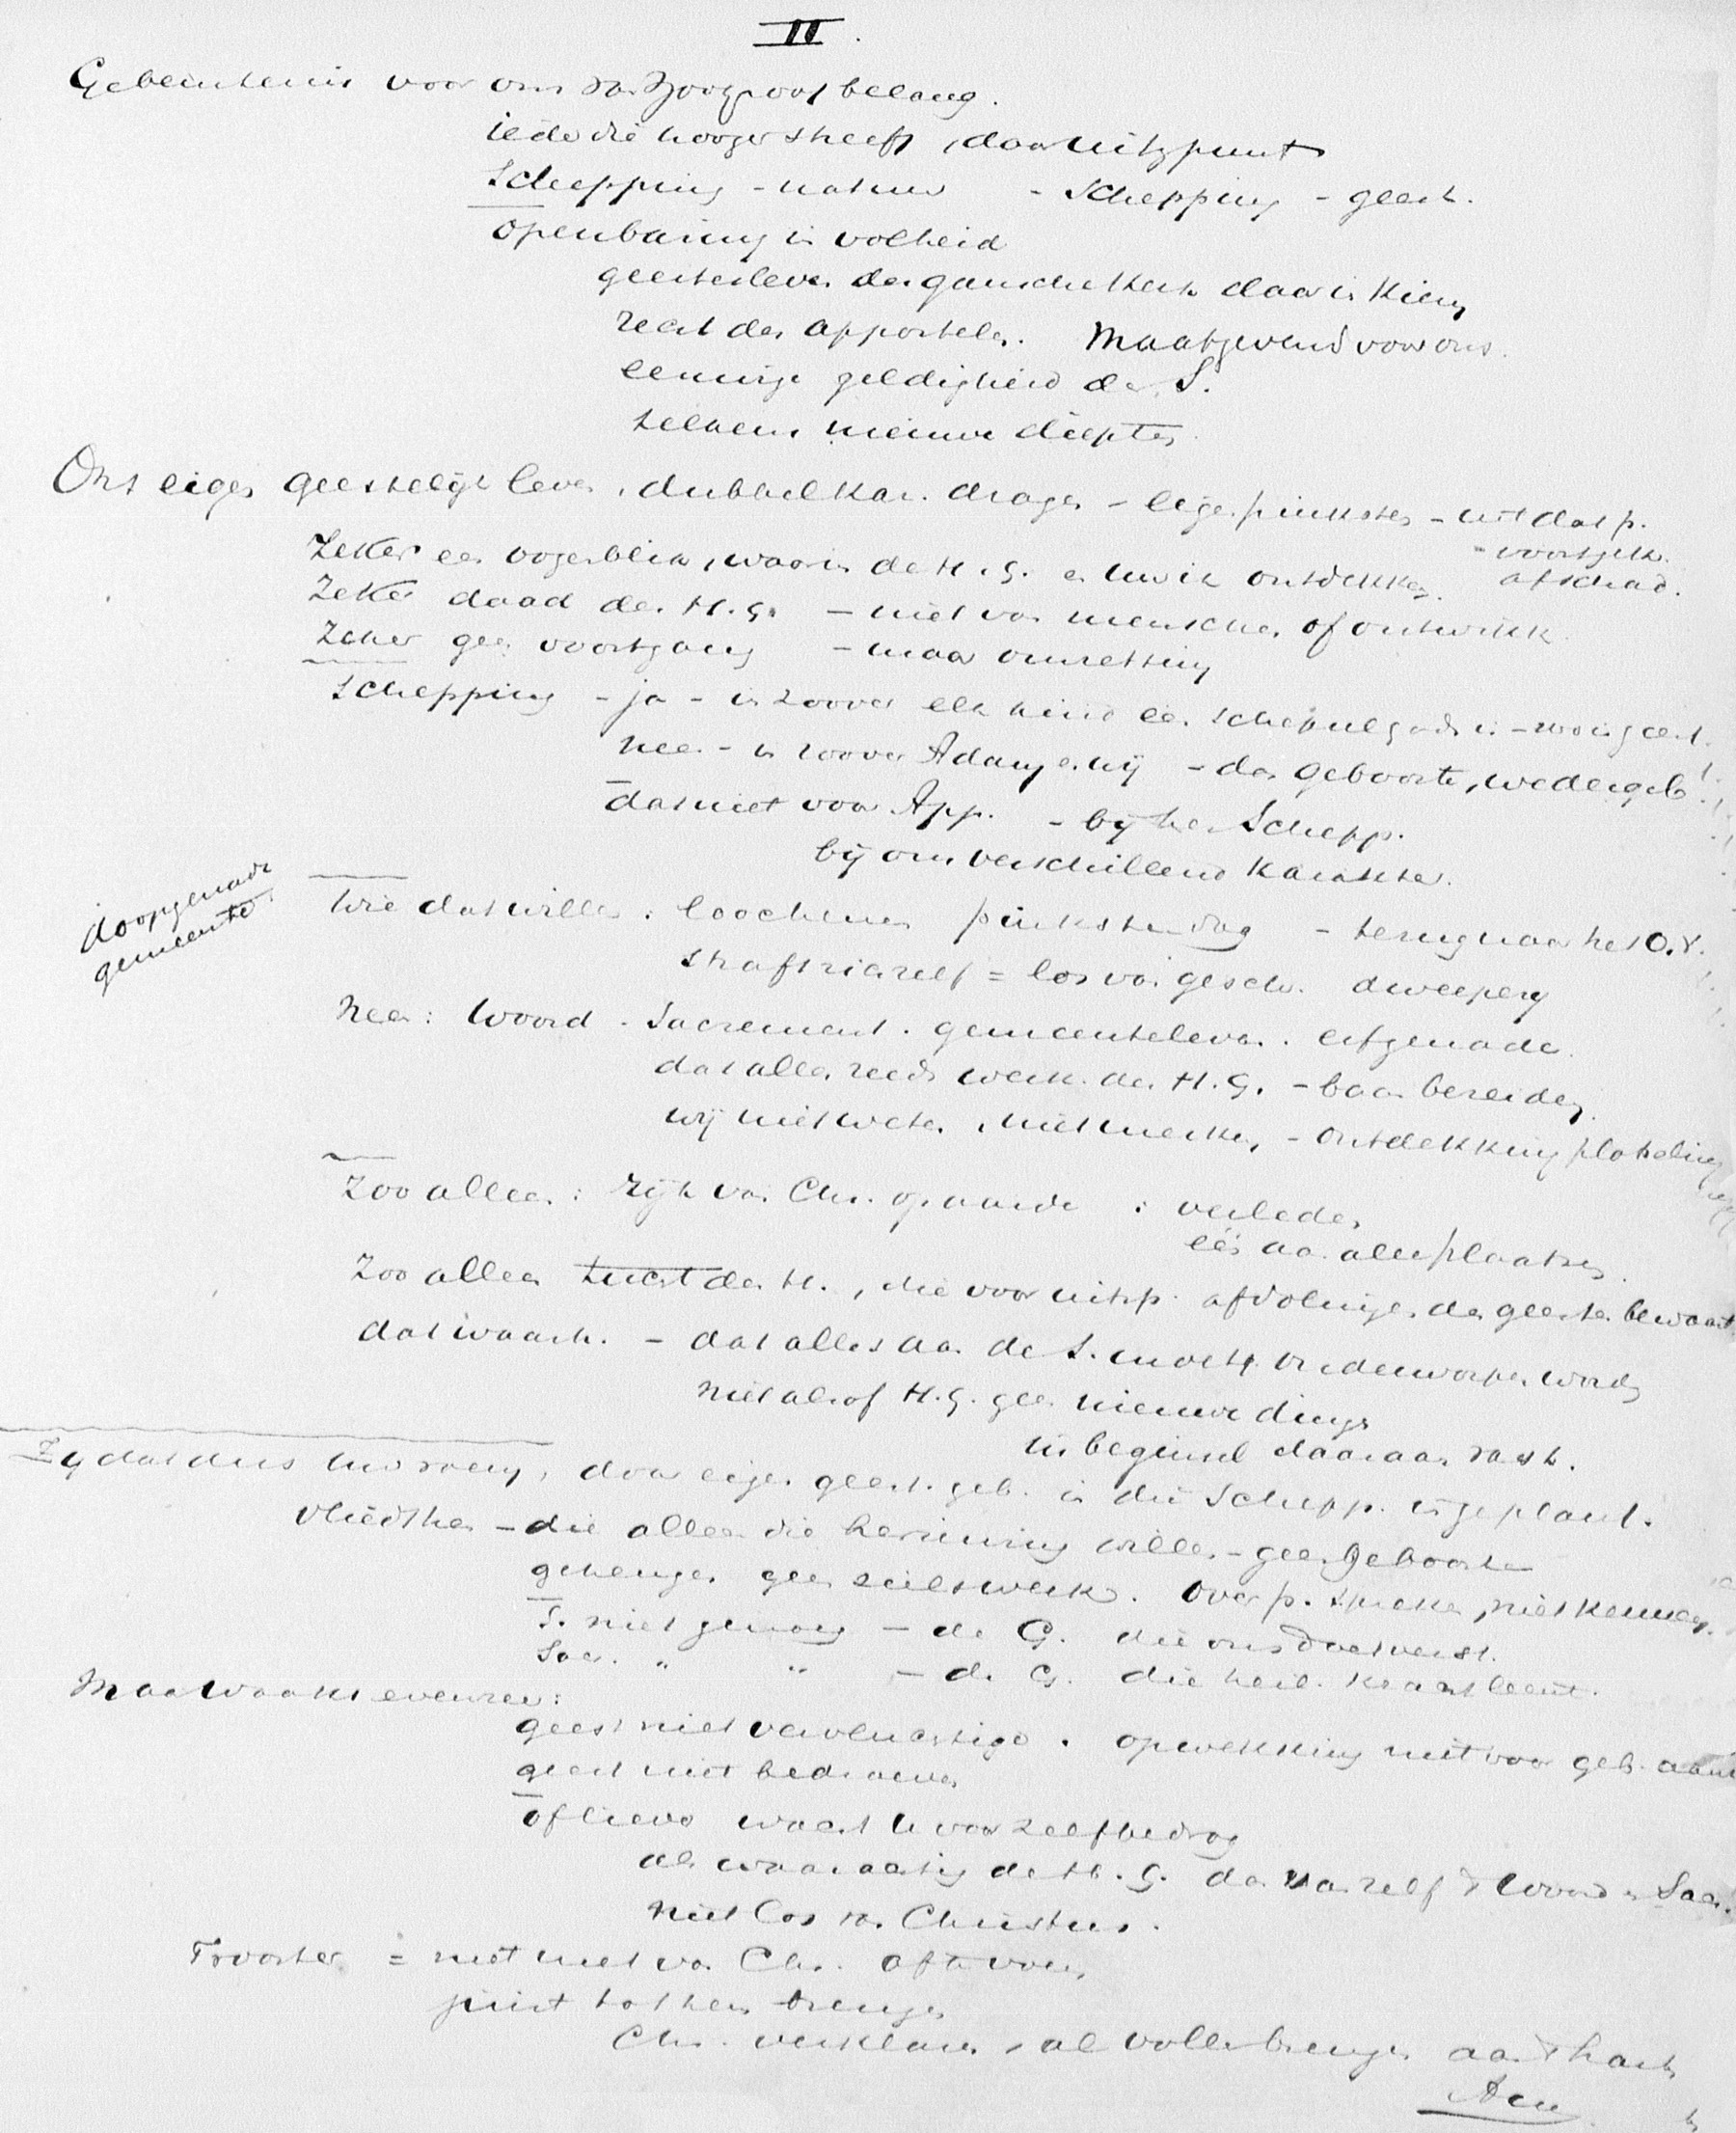 II.
Gebeurtenis voor ons van zoo groot belang.
ieder die hooger streeft, daar uitgpunt
Schepping - natuur - Schepping - geest.
openbaring in volheid
geestesleven der gansche Kerk daar in Kiem
rest der appostelen. Maatgevend voor ons.
eeuwige geldigheid der S.
telkens nieuwe diepten.
Ons eigen geestelijk leven, dubbel kar. dragen - eigen pinkster - uit dat p.
- voortgek.
afschad.
Zeker een oogenblik, waarin de H. G. en uw ik ontdekken.
Zeker daad der H. G. - niet van menschen of ontwikk.
Zeker geen voortgang - maar omzetting
Schepping - ja - in zoover elk kind een schepsel gods is - zoo is geest.
neen - in zoover Adam en wij - dan geboorte, wedergeb!
dat niet voor App. - bij hen Schepp.
bij ons verschillend karakter.
doopgenade
gemeente.
Wie dat willen: loochenen pinksterdag - terug naar het O.V.
straft zich zelf = los van gesch. dweeperij
Neen: Woord. Sacrement. gemeenteleven. erfgenade.
dat alles reeds werk der H. G. - baan bereiden.
wij niet weten, niet merken, - ontdekking plotseling
Zoo alleen: rijk van Chr. op aarde: verleden
één aan alle plaatsen.
Zoo alleen tucht der H., die voor uitsp. afdolingen der geesten bewaart
dat waarh. - dat alles aan de S. moet onderworpen worden
niet alsof H. G. geen nieuwe dingen
in beginsel daaraan vast.
Zij dat dus uw roem, door eigen geest. geb. in die Schepp. ingeplant.
Vliedt hen - die alleen die herinnering willen - geen geboorte
getuigen geen zielswerk. over p. spreken, niet kennen.
S. niet genoeg - de G. die ons doet verst.
Sac. " " - de G. die heil. kracht leent.
Maar waakt evenzeer:
geest niet vervluchtigd. opwekking niet voor geb.
geest niet bedroeven
of liever wacht u voor zelfbedrog
als waarachtig de H. G. dan van zelf 't Woord en Sacr.
niet los van Christus.
Trooster = niet met van Chr. afvoeren
juist tot hem brengen
Chr. verklaren, al voller brengen aan 't hart
Amen